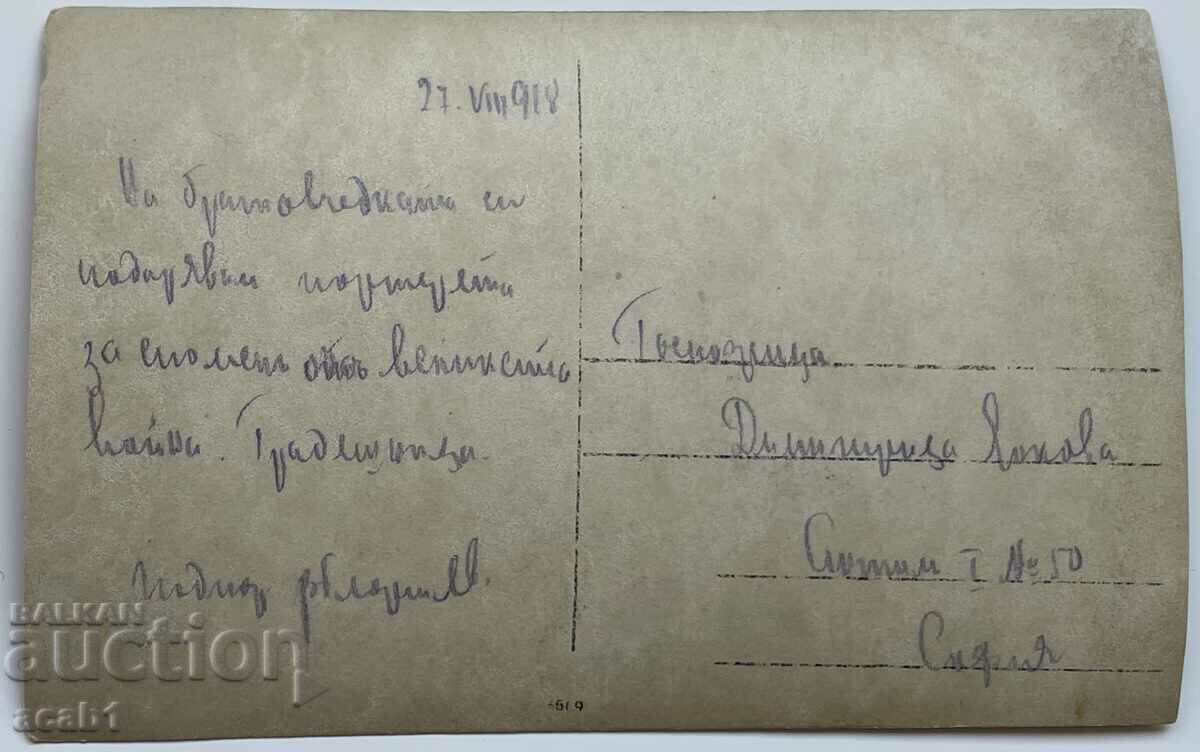 27. VIII 918
На братовчедката си
подарявам портрета
за споменъ отъ великата
война. Градешница.
Госпожица
Димитрица Янкова
София
№ 50
BALKAN
auction
acab1